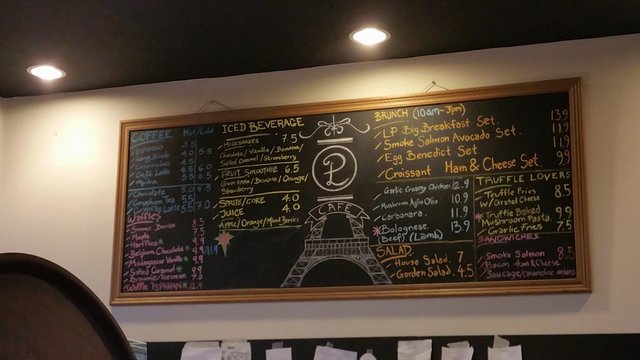 COFFEE Hot/Cold
Long Black
Cafe Latte
Mocha
Chocolate
Waffles
Summer Berries 8.5
Maple 7.5
Belgium Chocolate 9.9
Madagascar Vanilla 9.9
Salted Caramel 9.9
Brownie/Icecream
Waffle 12.9
ICED BEVERAGE
MILKSHAKES 7.5
Chocolate/Vanilla/Banana/
Salted Caramel/Strawberry
FRUIT SMOOTHIE 6.5
Banana/Orange/
Strawberry
SPRITE/COKE 4.0
JUICE 4.0
Apple/Orange/Mixed Berries
LP
CAFE
BRUNCH (10am-3pm)
LP Big Breakfast Set. 13.9
Smoke Salmon Avocado Set. 11.9
Egg Benedict Set 11.9
Croissant Ham & Cheese Set. 9.9
Garlic Creamy Chicken 12.9
Mushroom Aglio Olio 10.9
Carbonara. 11.9
Bolognese 13.9
(Beef) (Lamb)
SALAD
House Salad. 7.
Garden Salad. 4.5
TRUFFLE LOVERS
Truffle Fries 8.5
W/Grated Cheese
Truffle Baked 9.9
Mushroom Pasta.
Garlic Fries 7.5
SANDWICHES
Smoke Salmon 8.5
Bacon Ham & Cheese